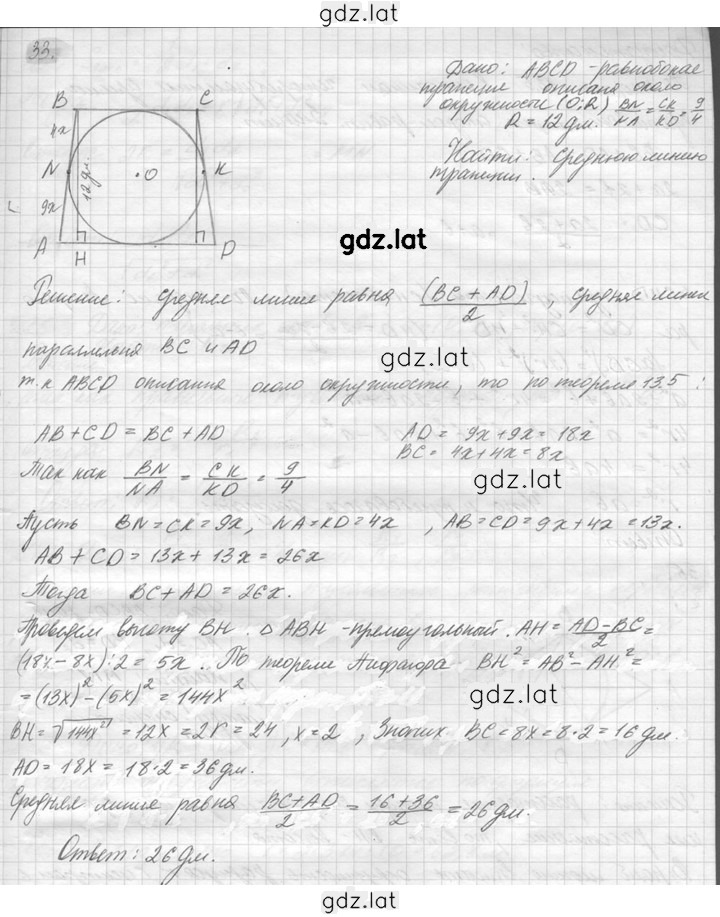 gdz.lat
33.
Дано: ABCD - равнобокая
трапеция описана около
окружности (O;R) BN/NA = CK/KD = 9/4
R = 12 дм.
Найти: Среднюю линию
трапеции.
B C
4x
N O K
12 дм.
9x
A H D
gdz.lat
Решение: Средняя линия равна (BC + AD)/2, средняя линия
параллельна BC и AD
gdz.lat
т.к ABCD описания около окружности, то по теореме 13.5:
AB + CD = BC + AD AD = 9x + 9x = 18x
BC = 4x + 4x = 8x
Так как BN/NA = CK/KD = 9/4
gdz.lat
Пусть BN = CK = 9x, NA = KD = 4x, AB = CD = 9x + 4x = 13x.
AB + CD = 13x + 13x = 26x
Тогда BC + AD = 26x.
gdz.lat
Проведем высоту BH. △ ABH - прямоугольной. AH = (AD - BC)/2 =
(18x - 8x) : 2 = 5x. По теореме Пифагора BH² = AB² - AH² =
= (13x)² - (5x)² = 144x²
BH = √144x² = 12x = 2r = 24, x = 2, Значит BC = 8x = 8·2 = 16 дм.
gdz.lat
AD = 18x = 18·2 = 36 дм.
Средняя линия равна (BC + AD)/2 = (16 + 36)/2 = 26 дм.
gdz.lat
Ответ: 26 дм.
gdz.lat